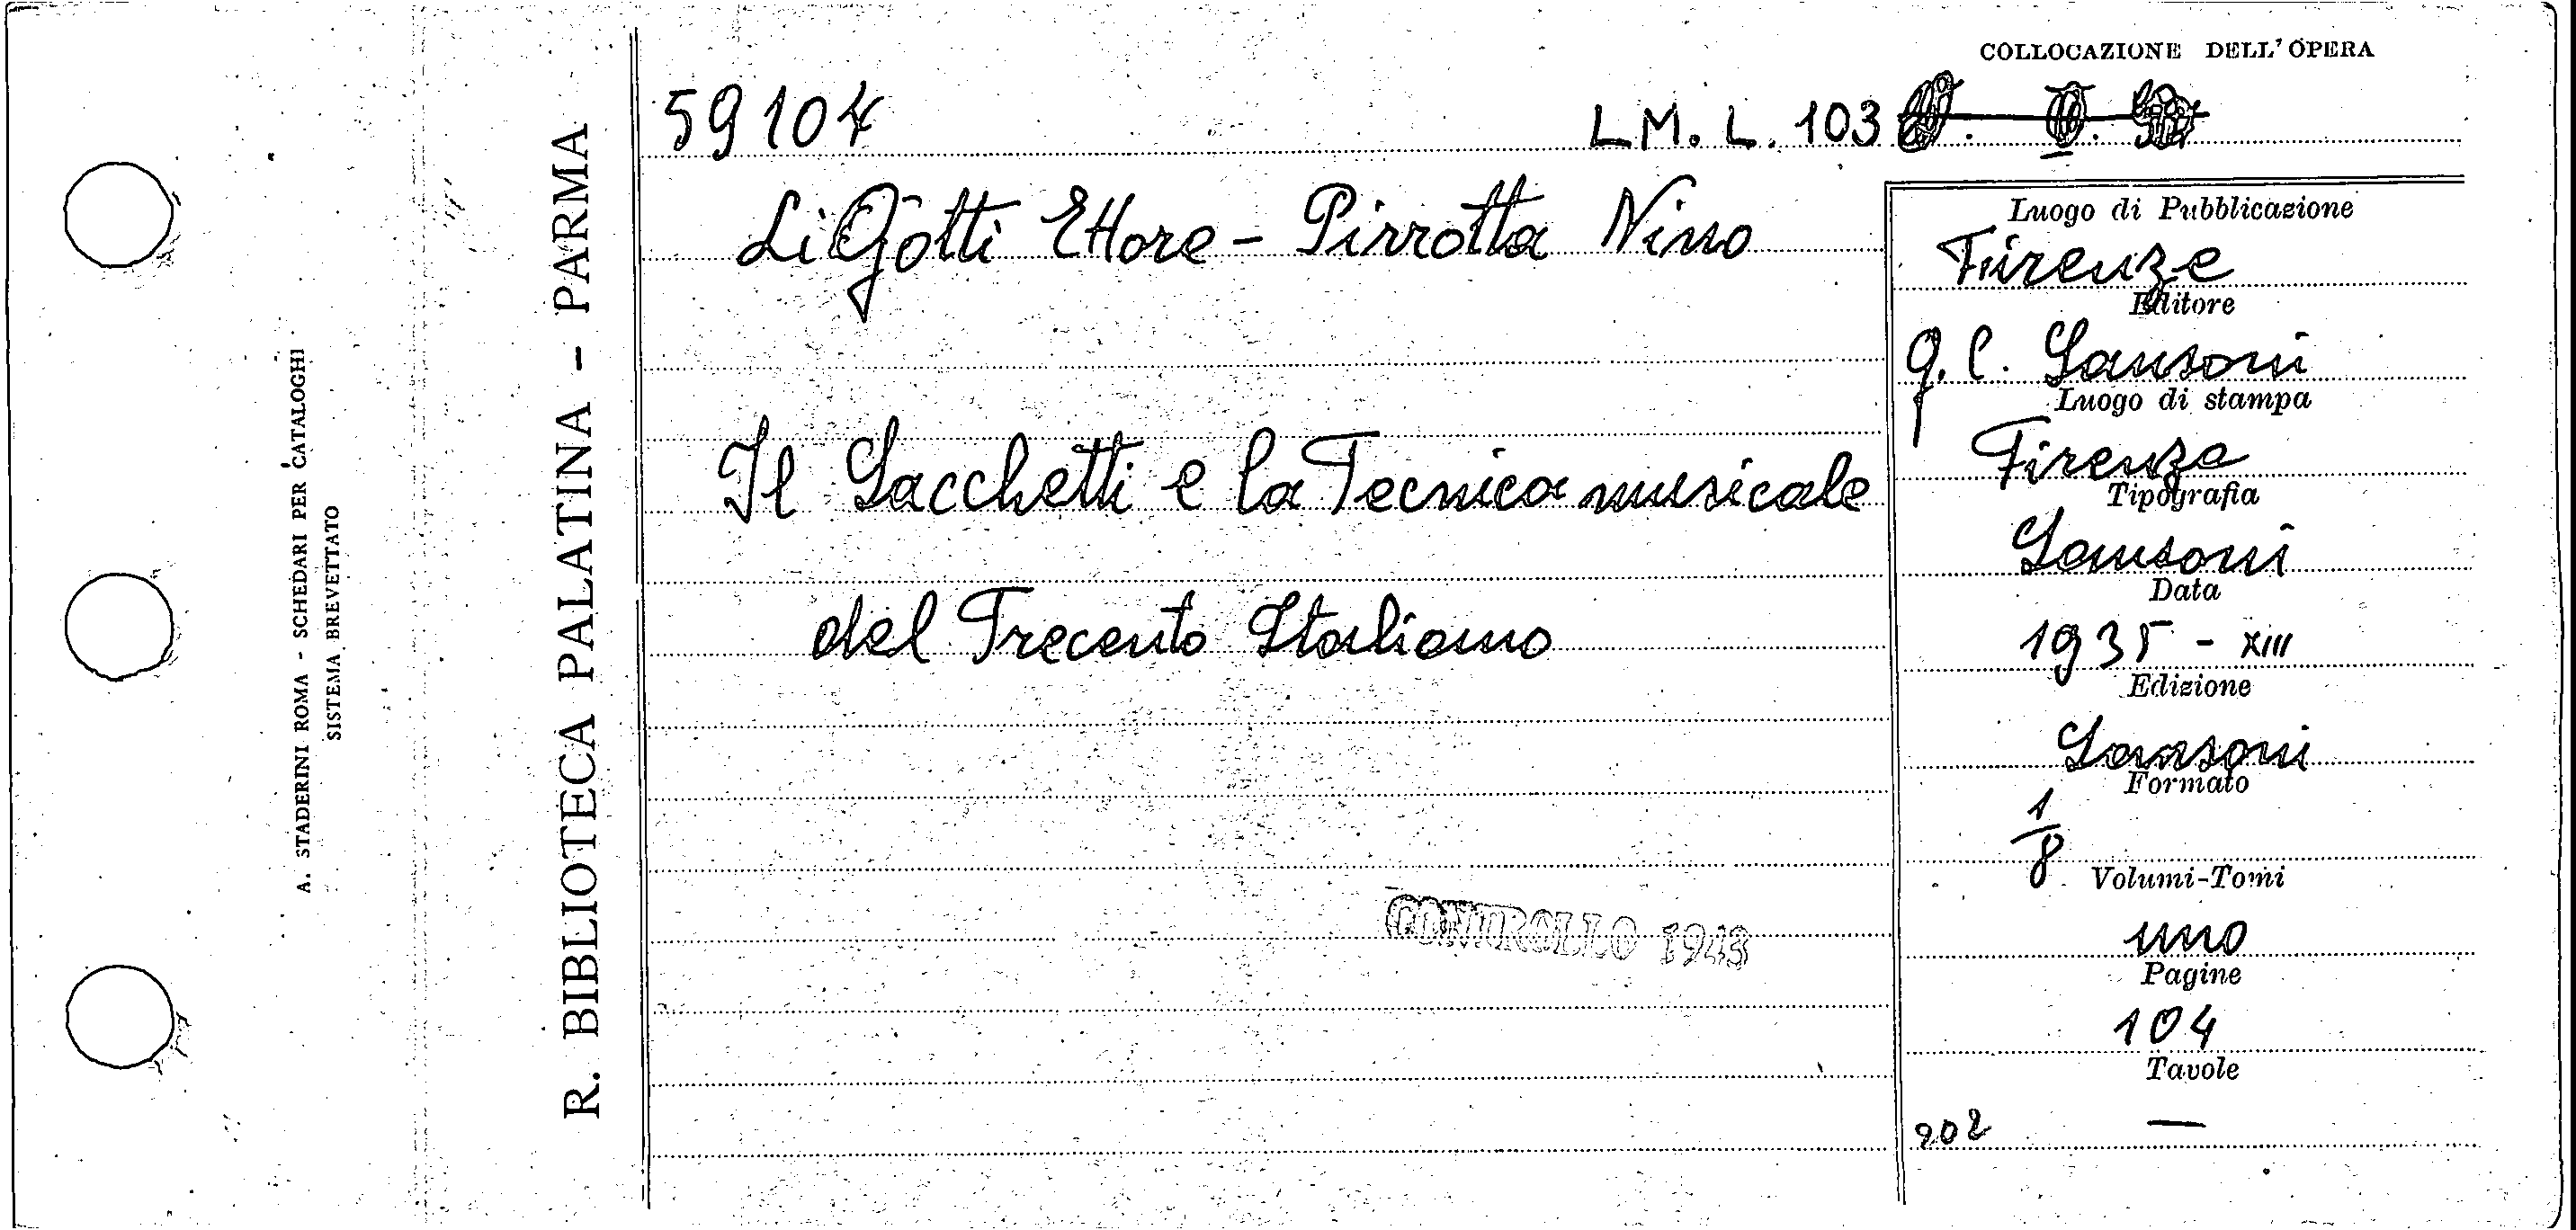 A. STADERINI ROMA - SCHEDARI PER CATALOGHI
SISTEMA BREVETTATO
R. BIBLIOTECA PALATINA - PARMA
COLLOCAZIONE DELL'OPERA
59104
LM. L. 103
Li Gotti Ettore - Pirrotta Nino
Il Sacchetti e la Tecnica musicale
del Trecento Italiano
CONTROLLO 1943
Luogo di Pubblicazione
Firenze
Editore
G. C. Sansoni
Luogo di stampa
Firenze
Tipografia
Sansoni
Data
1935 - XIII
Edizione
Sansoni
Formato
1/8
Volumi-Tomi
uno
Pagine
104
Tavole
—
202